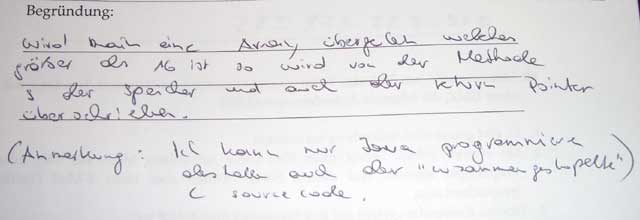 Begründung:
Wird main eine Array übergeben welches
größer als 16 ist so wird von der Methode
s der Speicher und auch der return Pointer
überschrieben.
(Anmerkung: Ich kann nur Java programmieren
deshalb auch der "zusammengestoppelte")
C sourcecode.